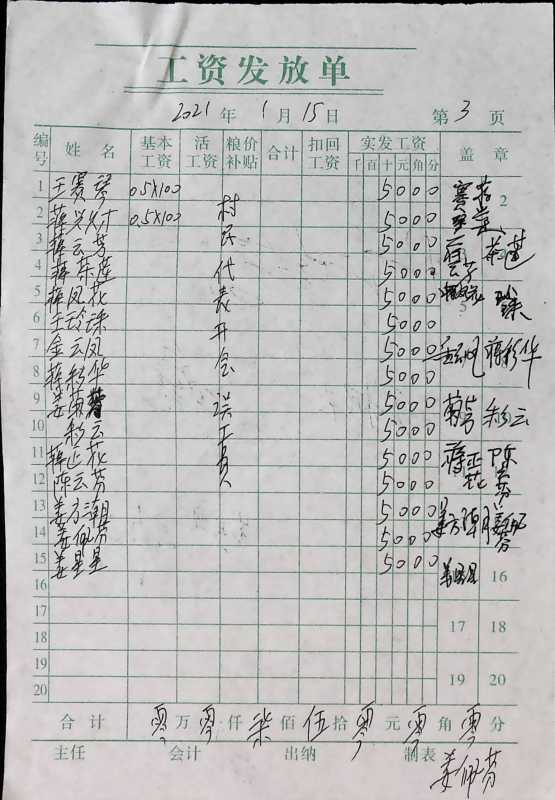 工资发放单
2021年1月15日 第3页
编号 姓名 基本工资 活工资 粮价补贴 合计 扣回工资 实发工资 千百十元角分 盖章
1 王赛琴 0.5×100 5000
2 蒋兴才 0.5×100 5000
3 蒋云芳 5000
4 蒋荣莲 5000
5 蒋凤花 5000
6 王玲珠 5000
7 金云凤 5000 金云凤 蒋彩华
8 蒋彩华 5000
9 姜菊 5000
10 彩云 5000 彩云
11 蒋正花 5000 蒋正花
12 陈云芬 5000 陈
13 姜方潮 5000 姜方潮
14 姜佩芬 5000 姜佩芬
15 姜星星 5000
16 16
17 17
18 18
19 19
20 20
村民代表开会误工员
合计 零万零仟柒佰伍拾零元零角零分
主任 会计 出纳 制表 姜佩芬